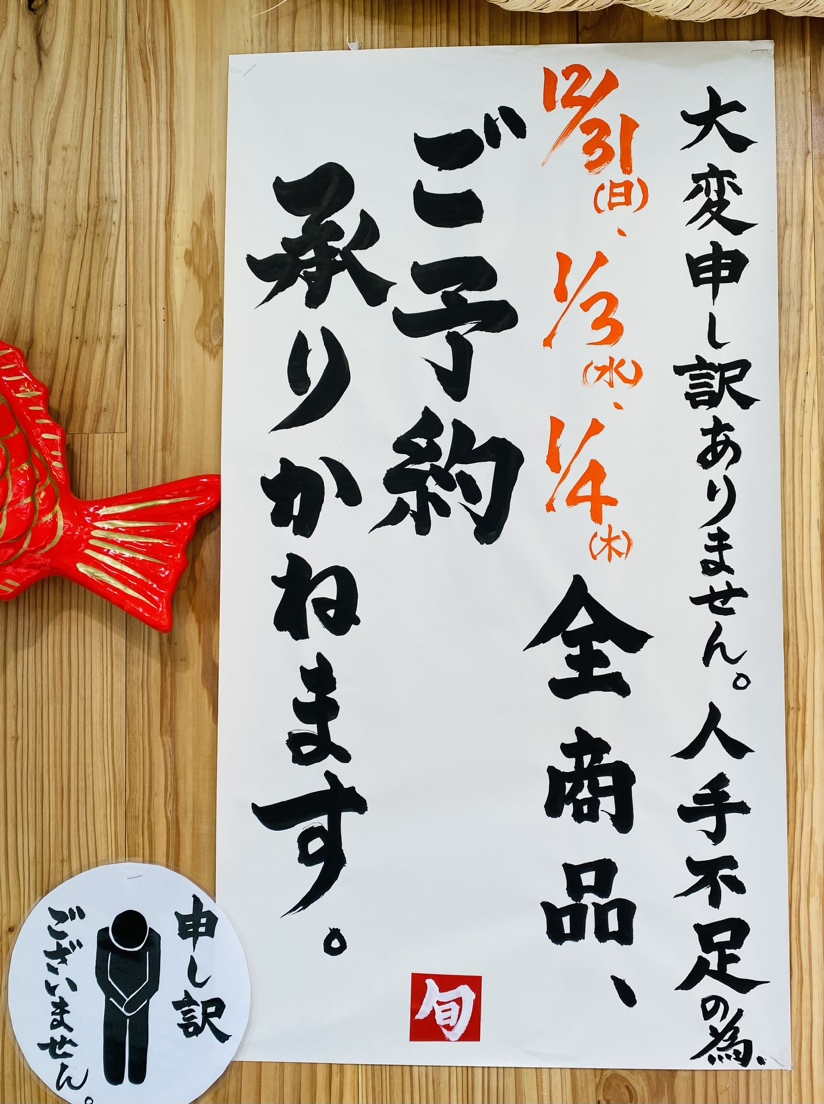 大変申し訳ありません。人手不足の為、
12/31(日)、1/3(水)、1/4(木)全商品、
ご予約
承りかねます。
旬
申し訳
ございません。